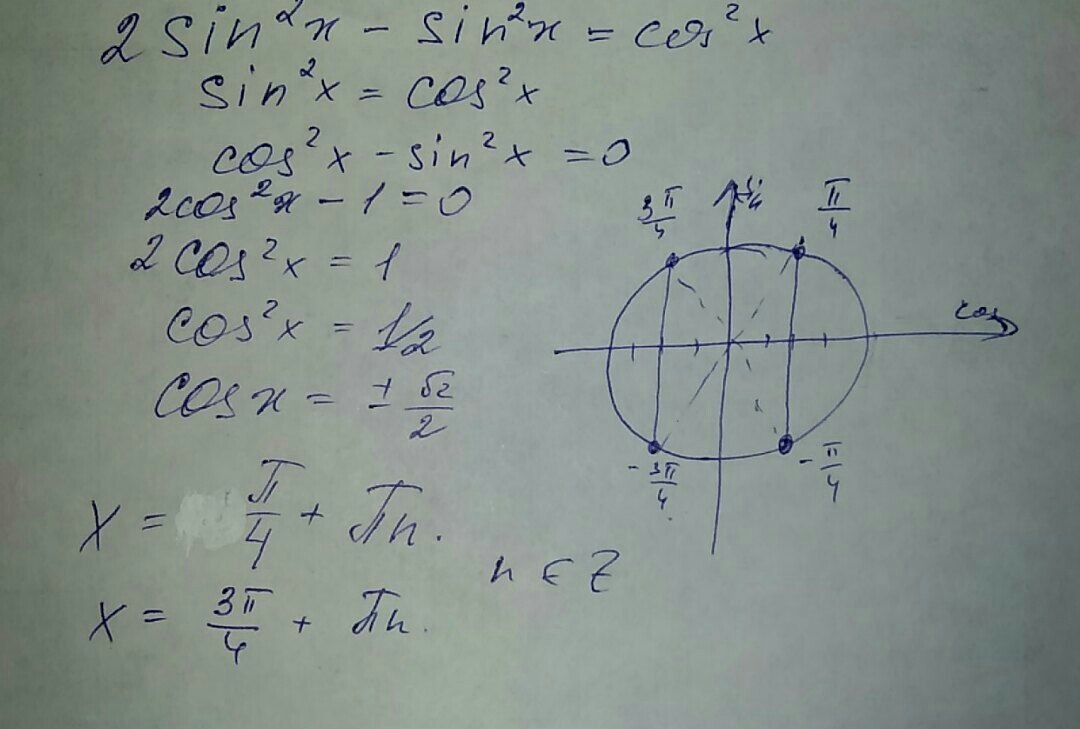 2 sin²x - sin²x = cos²x
sin²x = cos²x
cos²x - sin²x = 0
2cos²x - 1 = 0
2 cos²x = 1
cos²x = 1/2
cos x = ± √2/2
x = π/4 + πn.
x = 3π/4 + πn.
n ∈ Z
3π/4
π/4
cos
- 3π/4
- π/4